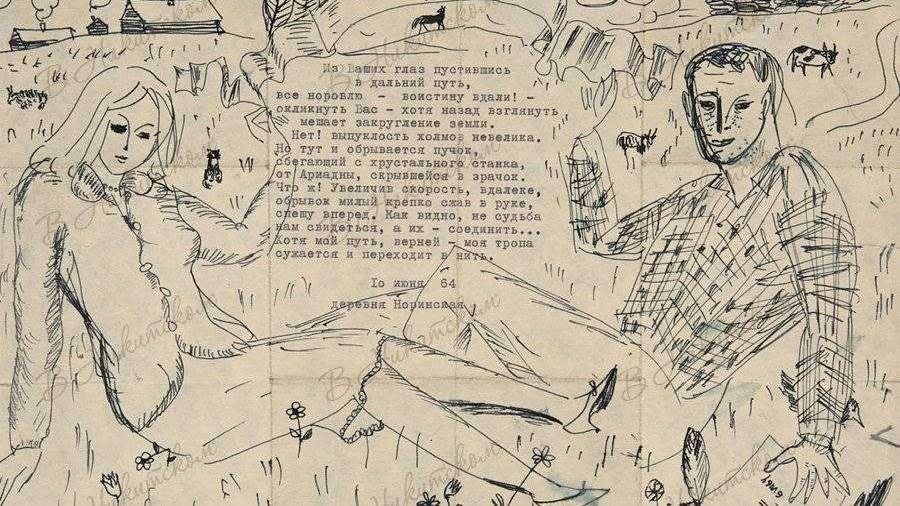 Из Ваших глаз пустившись
в дальний путь,
все норовлю - воистину вдали! -
окликнуть Вас - хотя назад взглянуть
мешает закругление земли.
Нет! выпуклость холмов невелика.
Но тут и обрывается пучок,
сбегающий с хрустального станка,
от Ариадны, скрывшейся в зрачок.
Что ж! Увеличив скорость, вдалеке,
обрывок милый крепко сжав в руке,
спешу вперед. Как видно, не судьба
нам свидеться, а их - соединить...
Хотя мой путь, верней - моя тропа
сужается и переходит в нить.
Iо июня 64
деревня Норинская
В Никитском